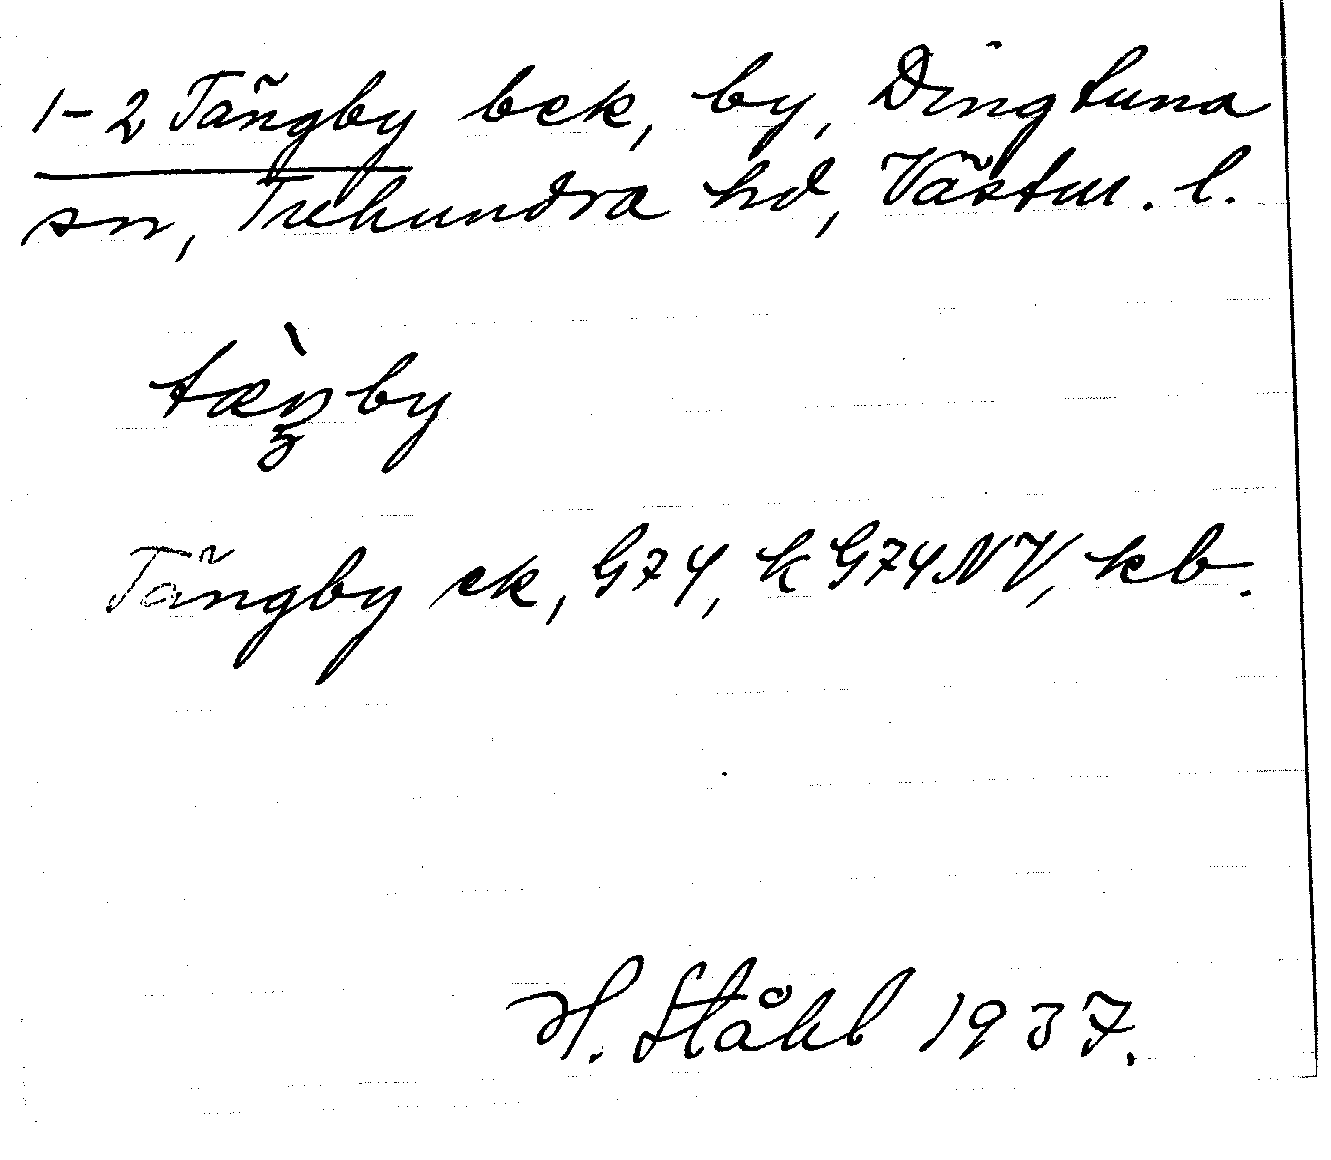 1-2 Tängby bek, by, Dingtuna
sn, Tuhundra hd, Västm. l.
tæ̀ŋby
Tängby ek, G74, k G74NV, kb.
H. Ståhl 1937.